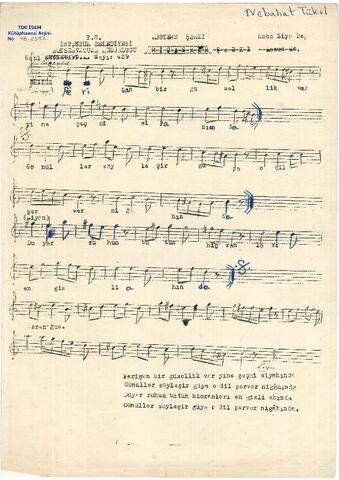 Nebahat Tükel
TDV İSAM
Kütüphanesi Arşivi
No
T.C.
İSTANBUL BELEDİYESİ
ŞARKI
Hoca Ziya Be.
Pe ri şan bir gü zel lik var
yi ne çeş mi si ya hın da
Gö nül ler söy le şir gü ya o dil
per ver ni gâ hın da
Du yar ru hun bü tün hic ran la rı
en giz li a hın da
Aranağme.
Perişan bir güzellik var yine çeşmi siyahında
Gönüller söyleşir güya o dil perver nigâhında
Duyar ruhum bütün hicranları en gizli ahında
Gönüller söyleşir güya o dil perver nigâhında.